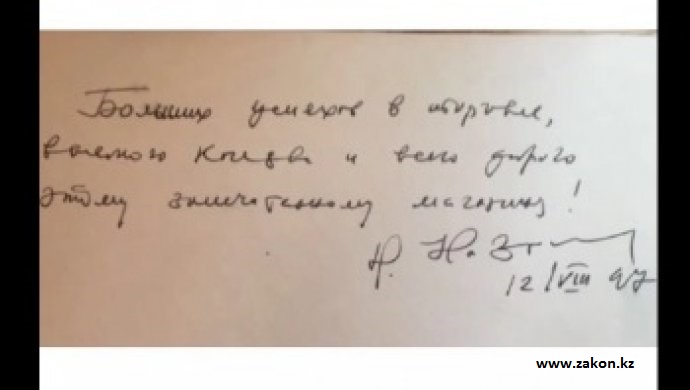 Больших успехов в торговле,
и всего доброго
этому замечательному магазину!
Н. Наз
12/VIII 97
www.zakon.kz